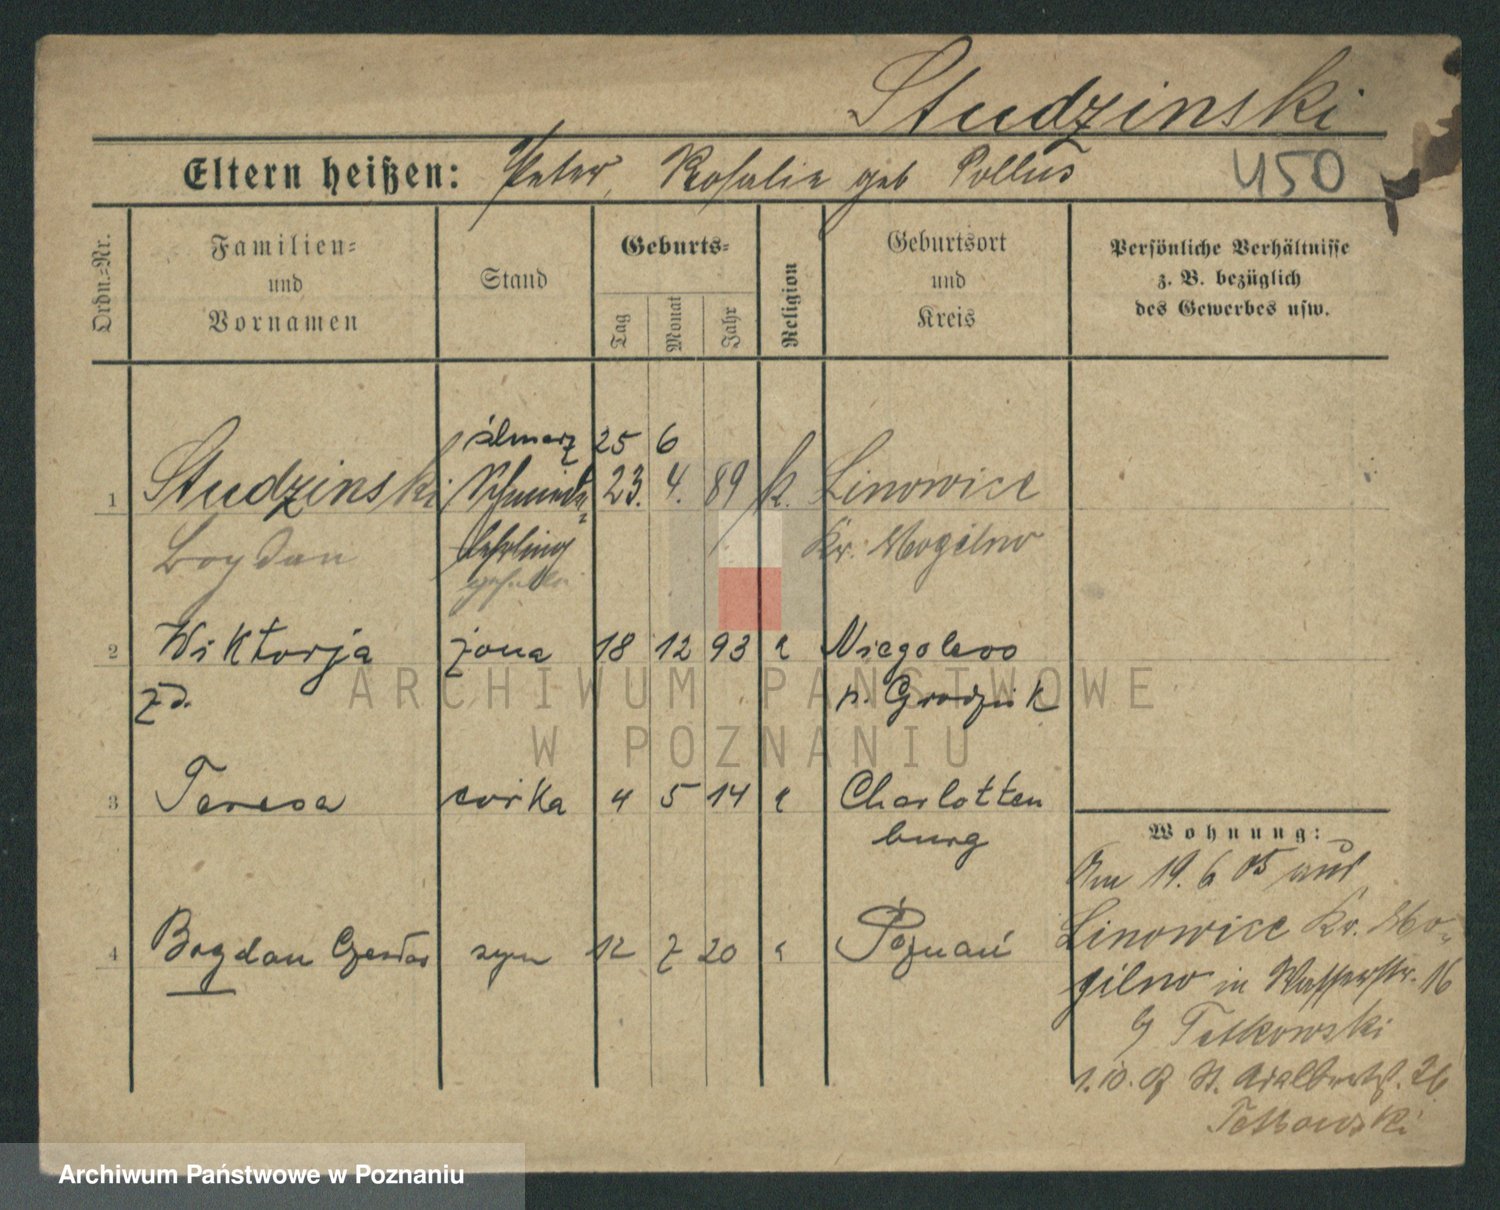 Studzinski
Eltern heißen: Peter, Rosalie geb Pollus
450
Ordn.-Nr.
Familien-
und
Vornamen
Stand
Geburts-
Tag
Monat
Jahr
Religion
Geburtsort
und
Kreis
Persönliche Verhältnisse
z. B. bezüglich
des Gewerbes usw.
25 6
1 Studzinski Schmiede- 23. 4. 89 k. Linowice
Bogdan lehrling Kr. Mogilno
2 Wiktorja żona 18 12 93 Niegolewo
p. Grodzisk
3 Teresa corka 4 5 14 Charlotten
burg
Wohnung:
Am 19. 6 05 aus
4 Bogdan syn 12 7 20 Poznań
Linowice Kr. Mo-
gilno in Wasserstr. 16
b/ Tetkowski
St. Adalbertst. 26
Tetkowski
ARCHIWUM PAŃSTWOWE
W POZNANIU
Archiwum Państwowe w Poznaniu